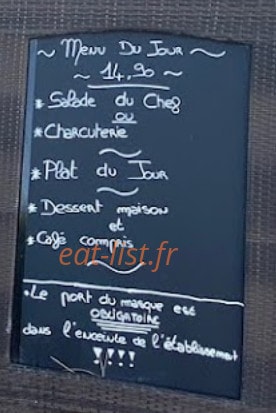 ~ Menu Du Jour ~
~ 14,90 ~
* Salade du Chef
ou
* Charcuterie
* Plat du Jour
* Dessert maison
et
* Café compris
eat-list.fr
• Le port du masque est
OBLIGATOIRE
dans l'enceinte de l'établissement
!!!!